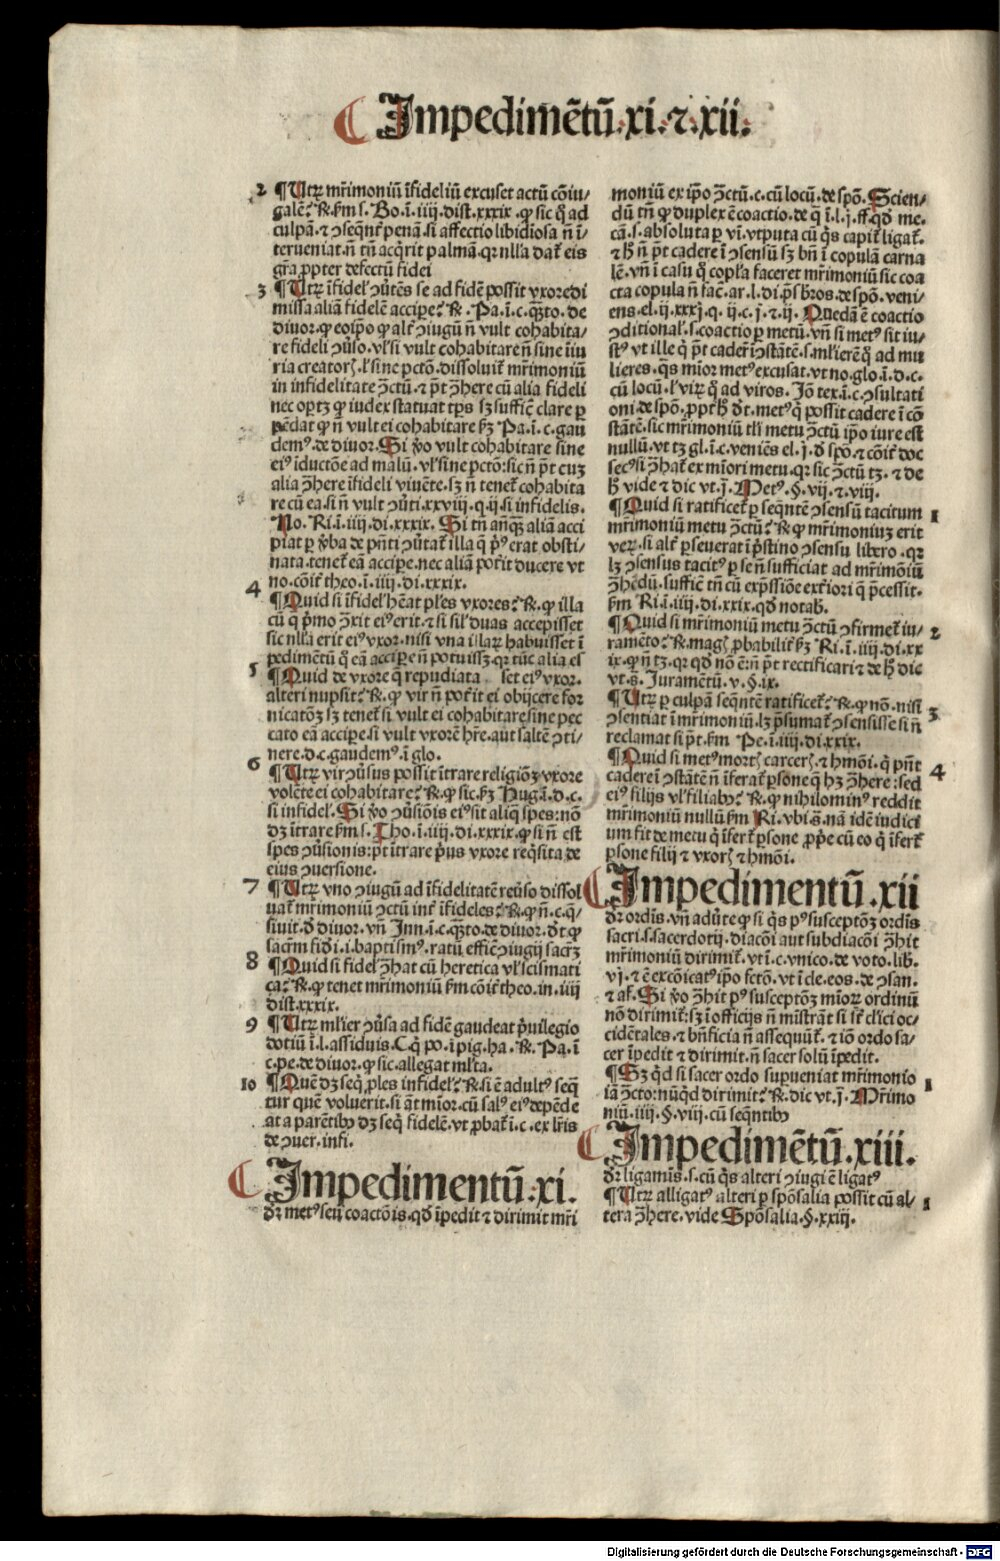 Impedimētū.xi.⁊.xii.
2 ¶Utrꝫ mr̄imoniū īfideliū excuset actū cōiu/
galē? ℟. ẜm s. Bo.ī.iiij.dist.xxxix. ꝙ sic q̄ ad
culpā.⁊ ↄseqn̄t̄ penā si affectio libidiosa n̄ ī/
terueniat.n̄ tn̄ acq̄rit palmā.qꝛ nlla dat̄ eis
gr̄a ꝓpter defectū fidei
3 ¶Utrꝫ īfidel̄ ↄu̓tēs se ad fidē possit vxore di
missa aliā fidelē accipe? ℟. Pa.ī.c.qͣto.de
diuor.ꝙ eoip̄o ꝙ alt̄ ↄiugū n̄ vult cohabita/
re fideli ↄu̓so.vl̄ si vult cohabitare n̄ sine iniu
ria creatorꝭ.l̄ sine pctō.dissoluit̄ mr̄imoniū
in infidelitate ↄ̄ctū ⁊ p̄t ↄ̄here cū alia fideli
nec oportꝫ ꝙ iudex statuat tp̄s sꝫ suffic̄ clare ꝑ
pēdat ꝙ n̄ vult ei cohabitare ẜꝫ Pa.ī.c.gau
demꝰ.de diuor. Si v̓o vult cohabitare sine
eiꝰ īductōe ad malū.vl̄ sine pctō:sic n̄ p̄t cuꝫ
alia ↄ̄here īfideli viuēte.sꝫ n̄ tenet̄ cohabita
re cū ea.si n̄ vult ↄu̓ti.xxviij.q.ij.si infidelis.
No.Ri.ī.iiij.di.xxxix. Si tn̄ anq̄ꝫ aliā acci
piat ꝑ v̓ba de pn̄ti ↄu̓tat̄ illa q̄ pͥꝰ erat obsti/
nata.tenet̄ eā accipe.nec aliā pot̓it ducere vt
no.cōit̓ theo.ī.iiij.di.xxxix.
4 ¶Quid si īfidel̄ hēat pl̄es vxores? ℟. ꝙ illa
cū q̄ pͥmo ↄ̄xit eiꝰ erit.⁊ si sil̄ duas accepisset
sic nlla erit eiꝰ vxor.nisi vna illaꝝ habuisset ī
pedimētū q̄ eā accipe n̄ potuissꝫ.qꝛ tūc alia eſ
5 ¶Quid de vxore q̄ repudiata set eiꝰ vxor.
alteri nupsit? ℟. ꝙ vir n̄ pot̓it ei obijcere for
nicatōꝫ sꝫ tenet̄ si vult ei cohabitare sine pec
cato eā accipe.si vult vxorē hr̄e.aut saltē ↄti/
nere.d.c.gaudemꝰ.ī glo.
6 ¶Utrꝫ vir ↄu̓sus possit ītrare religiōꝫ vxore
volēte ei cohabitare? ℟. ꝙ sic.ẜꝫ Hug.ī.d.c.
si infidel̄. Si v̓o ↄu̓siōis eiꝰ sit aliq̄ spes:nō
dꝫ ītrare ẜm s.Tho.ī.iiij.di.xxxix.ꝙ si n̄ est
spes ↄu̓sionis:p̄t ītrare pͥus vxore reqͥsita de
eius ↄuersione.
7 ¶Utrꝫ vno ↄiugū ad īfidelitatē reu̓so dissol
uat̄ mr̄imoniū ↄ̄ctū int̓ īfideles? ℟. ꝙ n̄.c.qͣ/
siuit.d̓ diuor.vn̄ Inn.ī.c.qͣto.de diuor.dt̄ ꝙ
sacr̄m fid̓i.i.baptismꝰ.ratū effic̄ ↄiugij sacr̄ꝫ
8 ¶Quid si fidel̄ ↄ̄hat cū heretica vl̄ scismati
ca? ℟. ꝙ tenet mr̄imoniū ẜm cōit̓ theo.in.iiij
dist.xxxix.
9 ¶Utrꝫ ml̓ier ↄu̓sa ad fidē gaudeat pͥuilegio
dotiū ī.l.assiduis.C.qͥ po.ī pig.ha. ℟. Pa.ī
c.pe.de diuor.ꝙ sic.allegat ml̓ta.
10 ¶Quē dꝫ seqͥ ꝓles infidel̄? ℟. si ē adultꝰ seqͣ
tur quē voluerit.si at̄ mīor.cū salꝰ eiꝰ depēde
at a parētibꝰ dꝫ seqͥ fidelē.vt ꝓbat̄ ī.c.ex lr̄is
de ↄuer.infi.
Impedimentū.xi.
dꝫ metꝰ seu coactōis.qd̓ īpedit ⁊ dirimit mr̄i
moniū ex ip̄o ↄ̄ctū.c.cū locū.de spō. Scien/
dū tn̄ ꝙ duplex ē coactio.de q̄ ī.l.j.ff.qd̓ me.
cā.s.absoluta ꝑ vī.vtputa cū qͥs capit̄ ligat̄.
⁊ h̄ n̄ p̄t cadere ī ↄsensū sꝫ bn̄ ī copulā carna
lē.vn̄ ī casu q̄ copl̓a faceret mr̄imoniū sic coa
cta copula n̄ fac̄.ar.l.di.p̄sbros.de spō.veni/
ens.el.ij.xxxj.q.ij.c.j.⁊.ij. Quedā ē coactio
ↄditional̄.s.coactio ꝑ metū.vn̄ si metꝰ sit iu/
stꝰ vt ille qͥ p̄t cader̄ ī ↄstātē.s.ml̓ierē q̄ ad mu
lieres.qͣs mīor metꝰ excusat.vt no.glo.ī.d.c.
cū locū.l̄ viꝝ q̄ ad viros. Iō tex.ī.c.ↄsultati
oni.de spō.ꝓpt̓ h̄ dt̄.metꝰ qͥ possit cadere ī cō
stātē.sic mr̄imoniū tl̓i metu ↄ̄ctū ip̄o iure est
nullū.vt tꝫ gl.ī.c.veniēs el.j.d̓ spō.⁊ cōit̓ doc
secꝰ si ↄ̄hat̄ ex mīori metu.qꝛ sic ↄ̄ctū tꝫ.⁊ de
h̄ vide ⁊ dic vt.j. Metꝰ.§.vij.⁊.viij.
¶Quid si ratificet̄ ꝑ seqn̄tē ↄsensū tacitum 1
mr̄imoniū metu ↄ̄ctū? ℟. ꝙ mr̄imoniuꝫ erit
veꝝ.si alt̓ ꝑseuerat ī pͥstino ↄsensu libero.qꝛ
lꝫ ↄsensus tacitꝰ ꝑ se n̄ sufficiat ad mr̄imōiū
ↄ̄hēdū.suffic̄ tn̄ cū exp̄ssiōe ext̓iori q̄ p̄cessit.
ẜm Ri.ī.iiij.di.xxix.qd̓ notab̓.
¶Quid si mr̄imoniū metu ↄ̄ctū ↄfirmet̄ iu/ 2
ramēto? ℟. magꝭ ꝓbabilit̓ ẜꝫ Ri.ī.iiij.di.xx
ix.ꝙ n̄ tꝫ.qꝛ qd̓ nō ē:n̄ p̄t rectificari ⁊ de h̄ dic
vt.s. Juramētū.v.§.ix.
¶Utrꝫ ꝑ culpā seqn̄tē ratificet̄? ℟. ꝙ nō.nisi
ↄsentiat ī mr̄imoniū.lꝫ p̄sumat̄ ↄsensisse si n̄ 3
reclamat si p̄t.ẜm Pe.ī.iiij.di.xxix.
¶Quid si metꝰ mortꝭ carcerꝭ.⁊ hmōi.q̄ pn̄t 4
cadere ī ↄstātē n̄ īferat̄ ꝑsone q̄ hꝫ ↄ̄here:sed
eiꝰ filijs vl̄ filiabꝰ? ℟. ꝙ nihilominꝰ reddit
mr̄imoniū nullū ẜm Ri.vbi.s.nā idē iudici
um fit de metu q̄ īfert̄ ꝑsone ꝓpͥe cū eo qͥ īfert̄
ꝑsone filij ⁊ vxorꝭ ⁊ hmōi.
Impedimentū.xii
dꝛ ordīs.vn̄ adu̓te ꝙ si qͥs pꝰ susceptōꝫ ordīs
sacri.s.sacerdotij.diacōi aut subdiacōi ↄ̄hit
mr̄imoniū dirimit̄.vt ī.c.vnico.de voto.lib.
vj.⁊ ē excōicatꝰ ip̄o fctō.vt ī cle.eos.de ↄsan.
⁊ af. Si v̓o ↄ̄hit pꝰ susceptōꝫ mīoꝝ ordinū
nō dirimit̄:sꝫ ī officijs n̄ mīstrāt si st̄ cl̓ici oc/
cidētales.⁊ bn̄ficia n̄ asseqūt̄.⁊ iō ordo sa/
cer īpedit ⁊ dirimit.n̄ sacer solū īpedit.
¶Sꝫ qͥd si sacer ordo supueniat mr̄imonio 1
iā ↄ̄cto:nūqͥd dirimit? ℟. dic vt.j. Mr̄imo
niū.iiij.§.viij.cū seqn̄tibꝰ
Impedimētū.xiii.
dꝛ ligamīs.s.cū qͥs alteri ↄiugi ē ligatꝰ
¶Utrꝫ alligatꝰ alteri ꝑ spōsalia possit cū al/ 1
tera ↄ̄here.vide Spōsalia.§.xxiij.
Digitalisierung gefördert durch die Deutsche Forschungsgemeinschaft - DFG